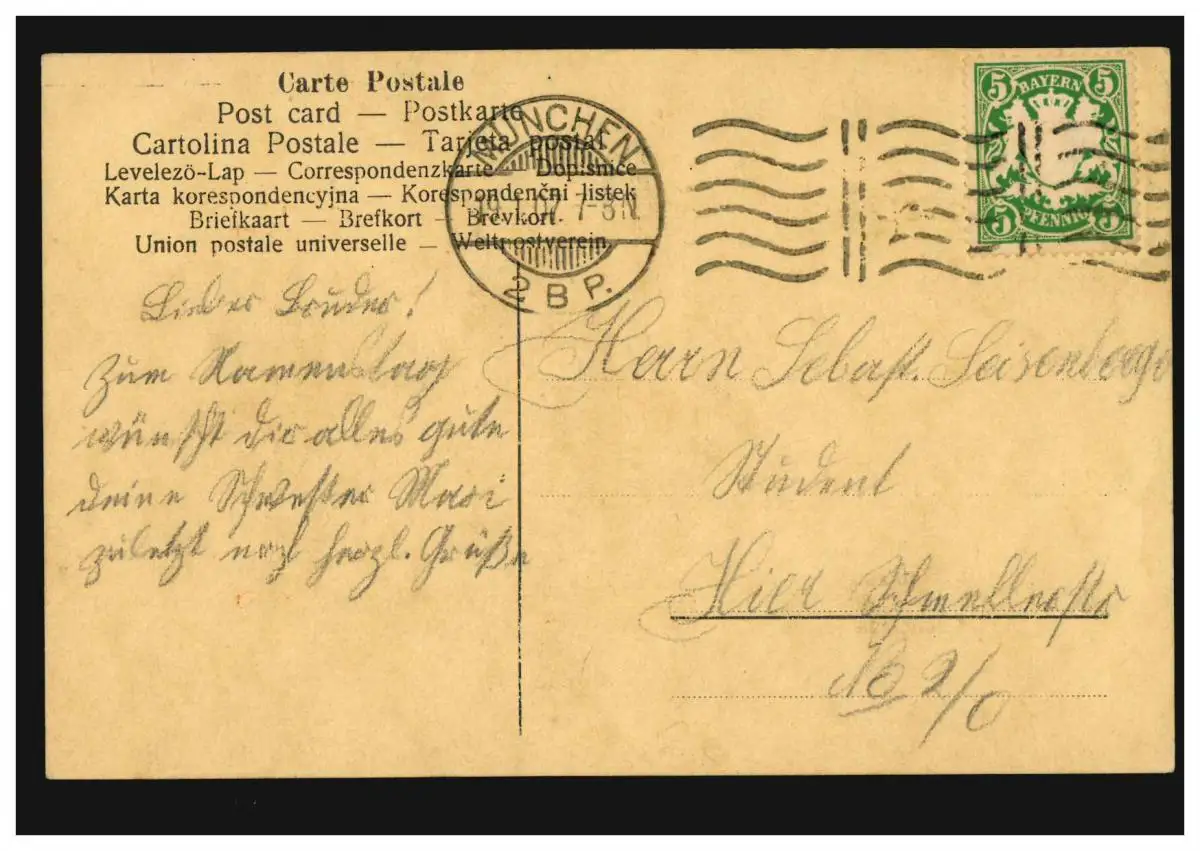 Carte Postale
Post card — Postkarte
Cartolina Postale — Tarjeta postal
Levelező-Lap — Correspondenzkarte — Dopisnice
Karta korespondencyjna — Korespondenčni listek
Briefkaart — Brefkort — Brevkort.
Union postale universelle — Weltpostverein.
MÜNCHEN
7-8 N.
2 B P.
5 BAYERN 5
5 PFENNIG 5
Lieber Bruder!
Zum Namenstag
wünscht dir alles gute
deine Schwester Mari
zuletzt noch herzl. Grüße
Herrn Sebast. Seisenberger
Student
Hier Schmellerstr
2/0